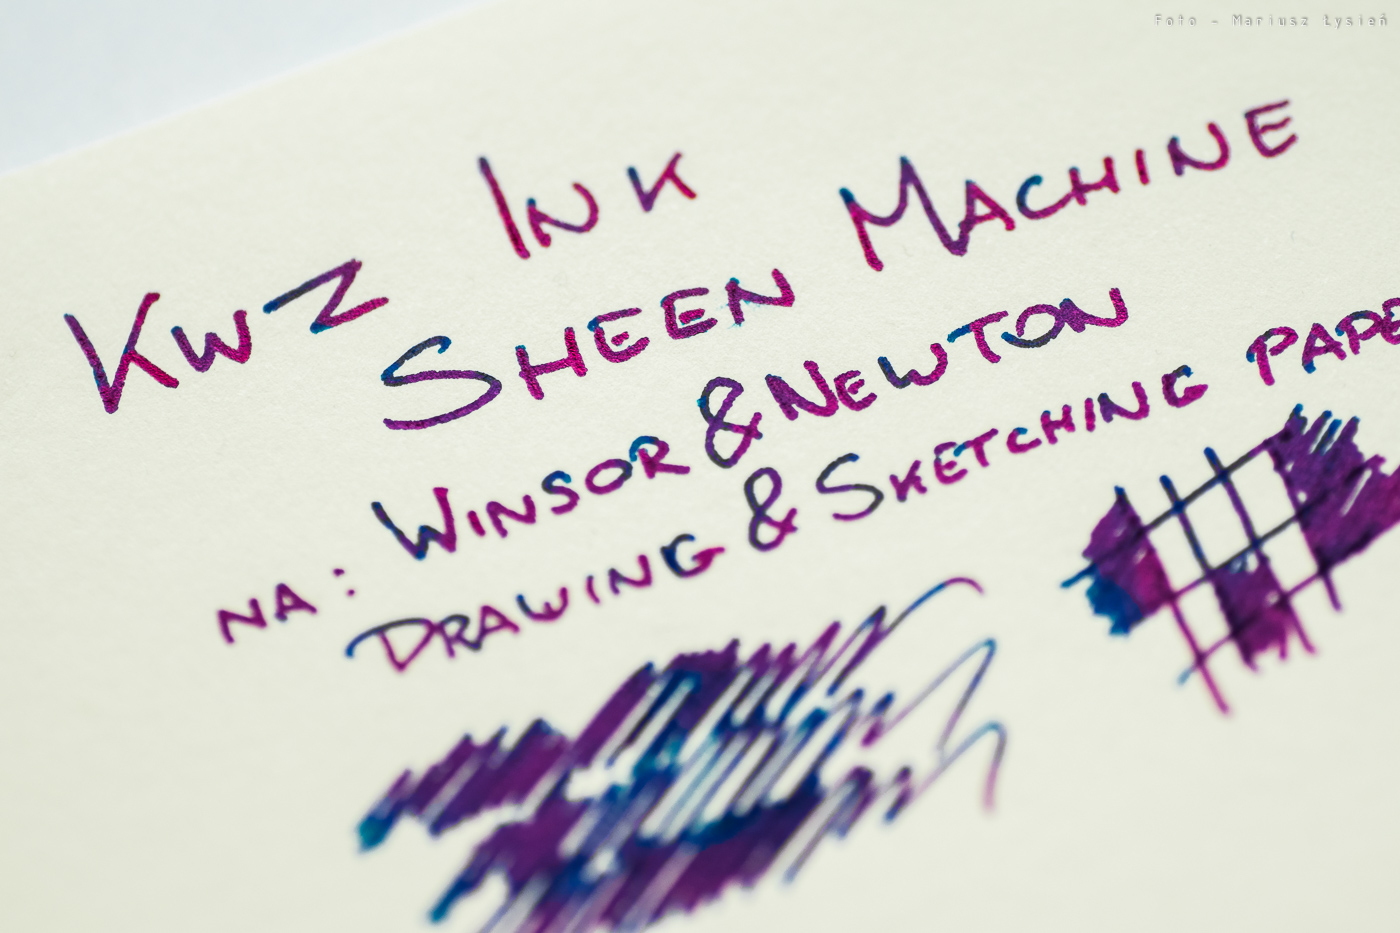 Foto - Mariusz Łysień
KWZ INK
SHEEN MACHINE
NA: WINSOR & NEWTON
DRAWING & SKETCHING PAPE